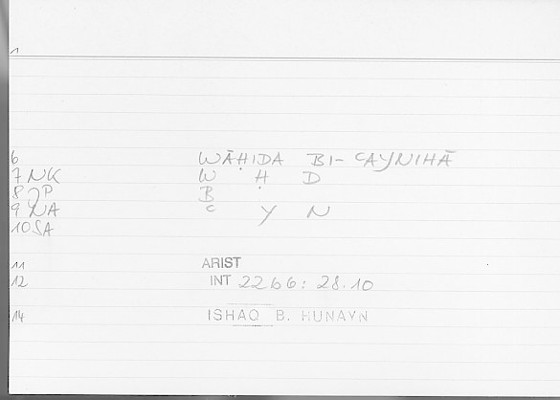 1
6 WĀḤIDA BI-ʿAYNIHĀ
7 NK W Ḥ D
8 JP B
9 NA ʿ Y N
10 SA
11 ARIST
12 INT 2266: 28.10
14 ISHAQ B. HUNAYN